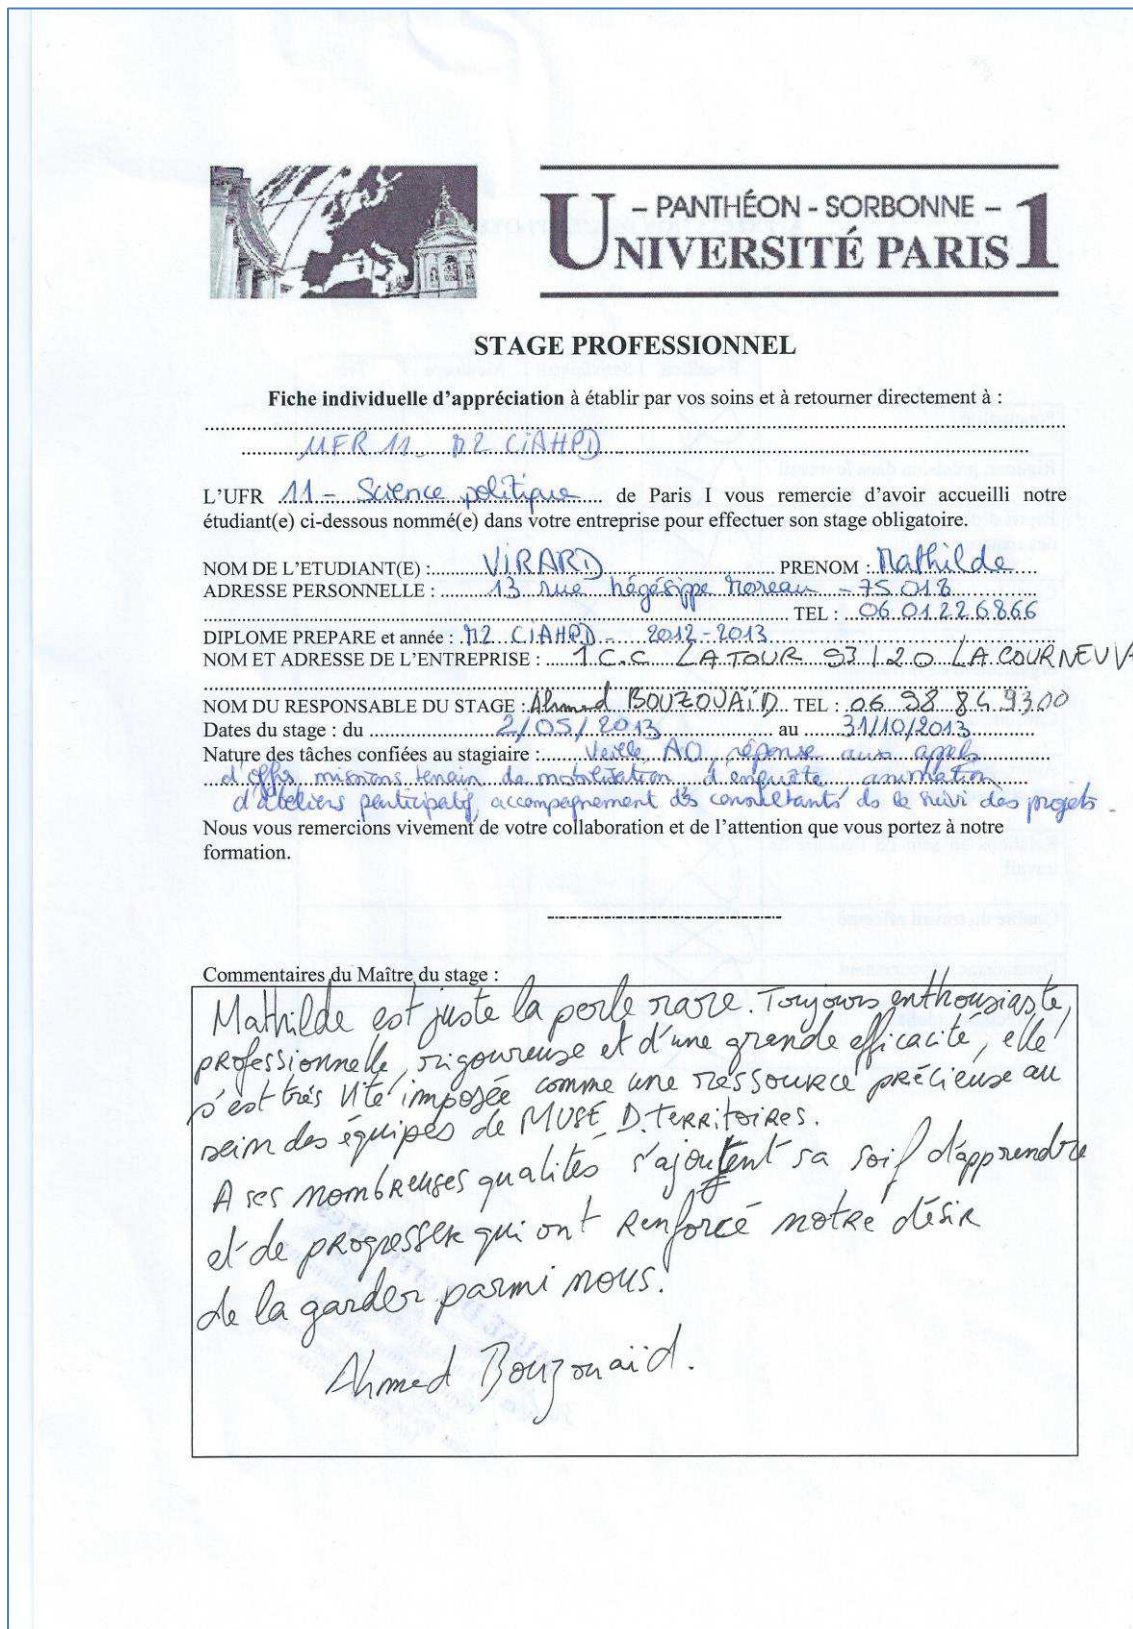 - PANTHÉON - SORBONNE -
UNIVERSITÉ PARIS 1
STAGE PROFESSIONNEL
Fiche individuelle d'appréciation à établir par vos soins et à retourner directement à :
UFR 11 - M2 CiAHPD
L'UFR 11 - Science politique de Paris I vous remercie d'avoir accueilli notre
étudiant(e) ci-dessous nommé(e) dans votre entreprise pour effectuer son stage obligatoire.
NOM DE L'ETUDIANT(E) : ViRARD PRENOM : Mathilde
ADRESSE PERSONNELLE : 13 rue hégésippe Moreau - 75 018
TEL : 06 01 22 68 66
DIPLOME PREPARE et année : M2 CIAHPD - 2012-2013
NOM ET ADRESSE DE L'ENTREPRISE : 1 C.C LA TOUR 93120 LA COURNEUV
NOM DU RESPONSABLE DU STAGE : Ahmed BOUZOUAÏD TEL : 06 98 84 93 00
Dates du stage : du 2/05/2013 au 31/10/2013
Nature des tâches confiées au stagiaire : Veille AO, réponse aux appels
d'offres, missions terrain de mobilisation d'enquête animation
d'ateliers participatif, accompagnement des consultants ds le suivi des projets.
Nous vous remercions vivement de votre collaboration et de l'attention que vous portez à notre
formation.
Commentaires du Maître du stage :
Mathilde est juste la perle rare. Toujours enthousiaste,
professionnelle, rigoureuse et d'une grande efficacité, elle
s'est très vite imposée comme une ressource précieuse au
sein des équipes de MUSE D. TERRITOIRES.
A ses nombreuses qualités s'ajoutent sa soif d'apprendre
et de progresser qui ont renforcé notre désir
de la garder parmi nous.
Ahmed Bouzouaïd.